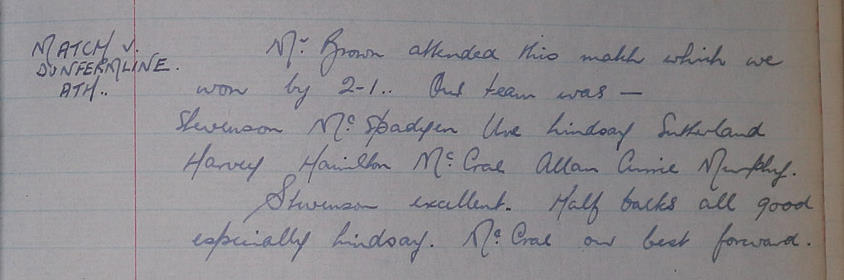 MATCH v.
DUNFERMLINE
ATH..
Mr. Brown attended this match which we
won by 2-1.. Our team was —
Stevenson McSpadyen Ure Lindsay Sutherland
Harvey Hamilton McCrae Allan Currie Murphy.
Stevenson excellent. Half backs all good
especially Lindsay. McCrae our best forward.